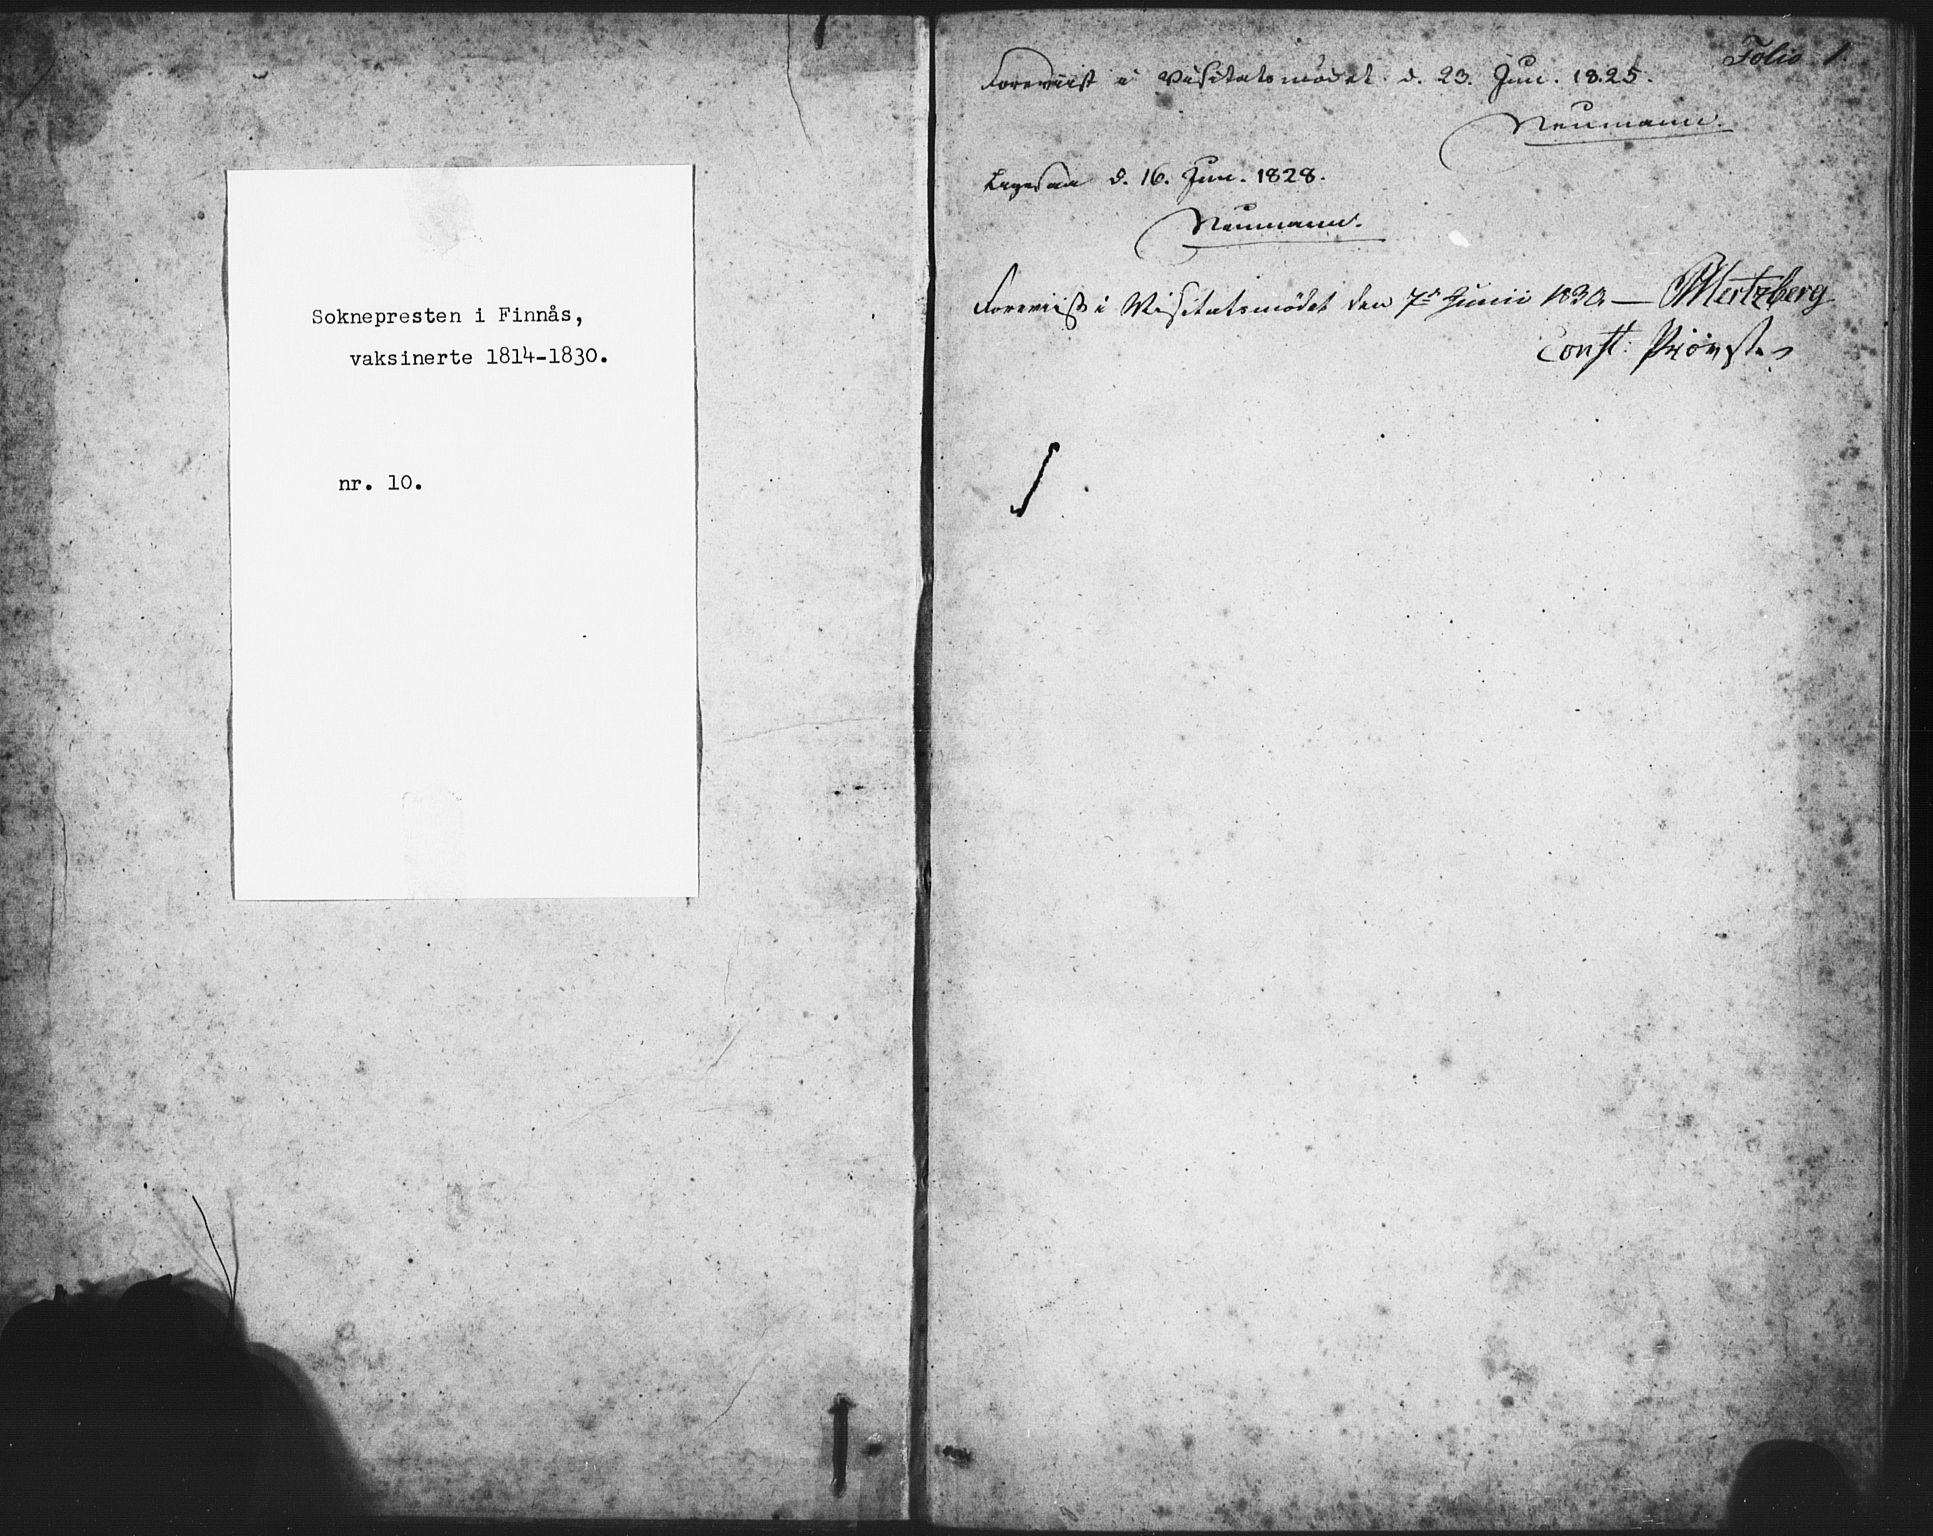 Soknepresten i Finnås,
vaksinerte 1814-1830.
nr. 10.
Folio 1.
Foreviist i Visitatsmødet d. 23. Jun. 1825.
Neumann.
Ligesaa d. 16. Jun. 1828.
Neumann.
Foreviist i Visitatsmødet den 7de Junii 1830. — Hertzberg
Const: Provst